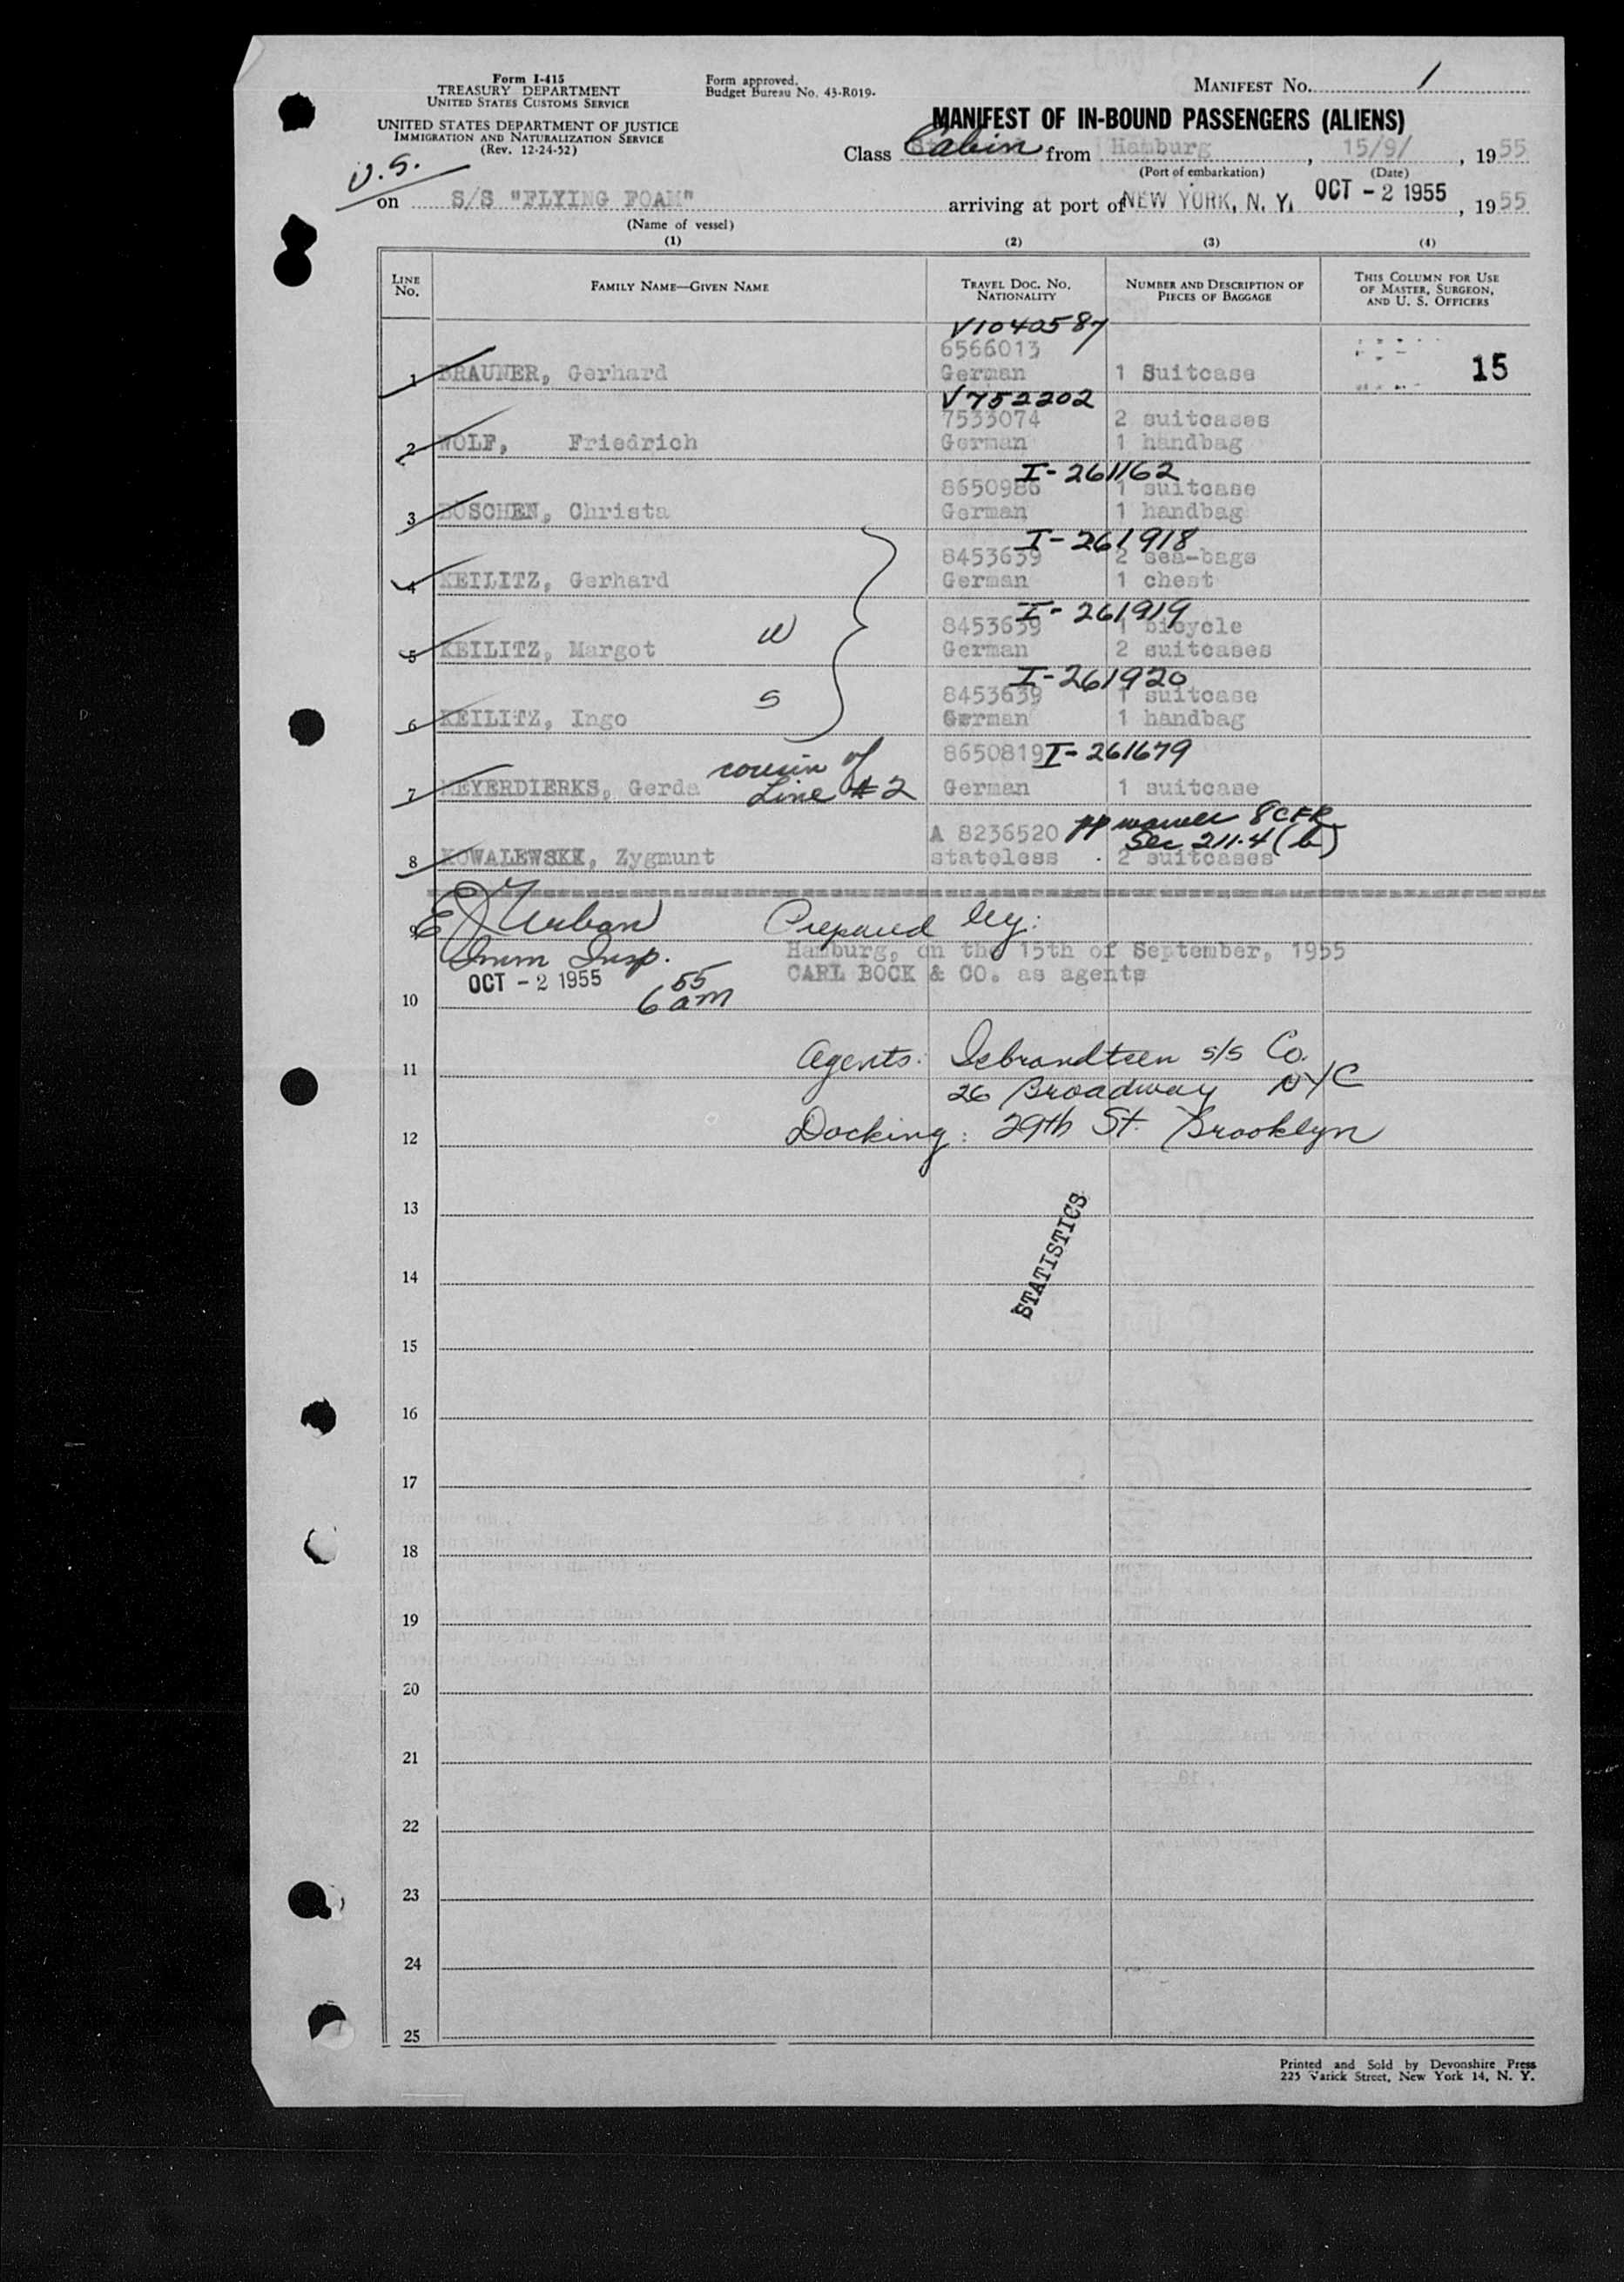 Form I-415
TREASURY DEPARTMENT
UNITED STATES CUSTOMS SERVICE
UNITED STATES DEPARTMENT OF JUSTICE
IMMIGRATION AND NATURALIZATION SERVICE
(Rev. 12-24-52)
Form approved.
Budget Bureau No. 43-R019-
MANIFEST No. 1
MANIFEST OF IN-BOUND PASSENGERS (ALIENS)
Class Cabin from Hamburg, 15/9/, 1955
(Port of embarkation) (Date)
U.S.
on S/S "FLYING FOAM" arriving at port of NEW YORK, N. Y. OCT - 2 1955, 1955
(Name of vessel)
(1) (2) (3) (4)
LINE No.
FAMILY NAME—GIVEN NAME
TRAVEL DOC. NO. NATIONALITY
NUMBER AND DESCRIPTION OF PIECES OF BAGGAGE
THIS COLUMN FOR USE OF MASTER, SURGEON, AND U. S. OFFICERS
V1040587
6566013
1 BRAUNER, Gerhard German 1 Suitcase 15
V752202
7533074 2 suitcases
2 WOLF, Friedrich German 1 handbag
I-261162
8650986 1 suitcase
3 BÖSCHEN, Christa German 1 handbag
I-261918
8453639 2 sea-bags
4 KEILITZ, Gerhard German 1 chest
I-261919
8453639 1 bicycle
5 KEILITZ, Margot W German 2 suitcases
I-261920
8453639 1 suitcase
6 KEILITZ, Ingo S German 1 handbag
cousin of 8650819 I-261679
7 MEYERDIERKS, Gerda Line #2 German 1 suitcase
A 8236520 pp waiver 8CFR
Sec 211.4(b)
8 KOWALEWSKK, Zygmunt stateless 2 suitcases
9 E J Urban Prepared by:
Imm Insp. Hamburg, on the 15th of September, 1955
OCT - 2 1955 CARL BOCK & CO. as agents
10 6 55 am
11 Agents: Isbrandtsen S/S Co.
26 Broadway NYC
12 Docking: 29th St. Brooklyn
13
STATISTICS
14
15
16
17
18
19
20
21
22
23
24
25
Printed and Sold by Devonshire Press
225 Varick Street, New York 14, N. Y.